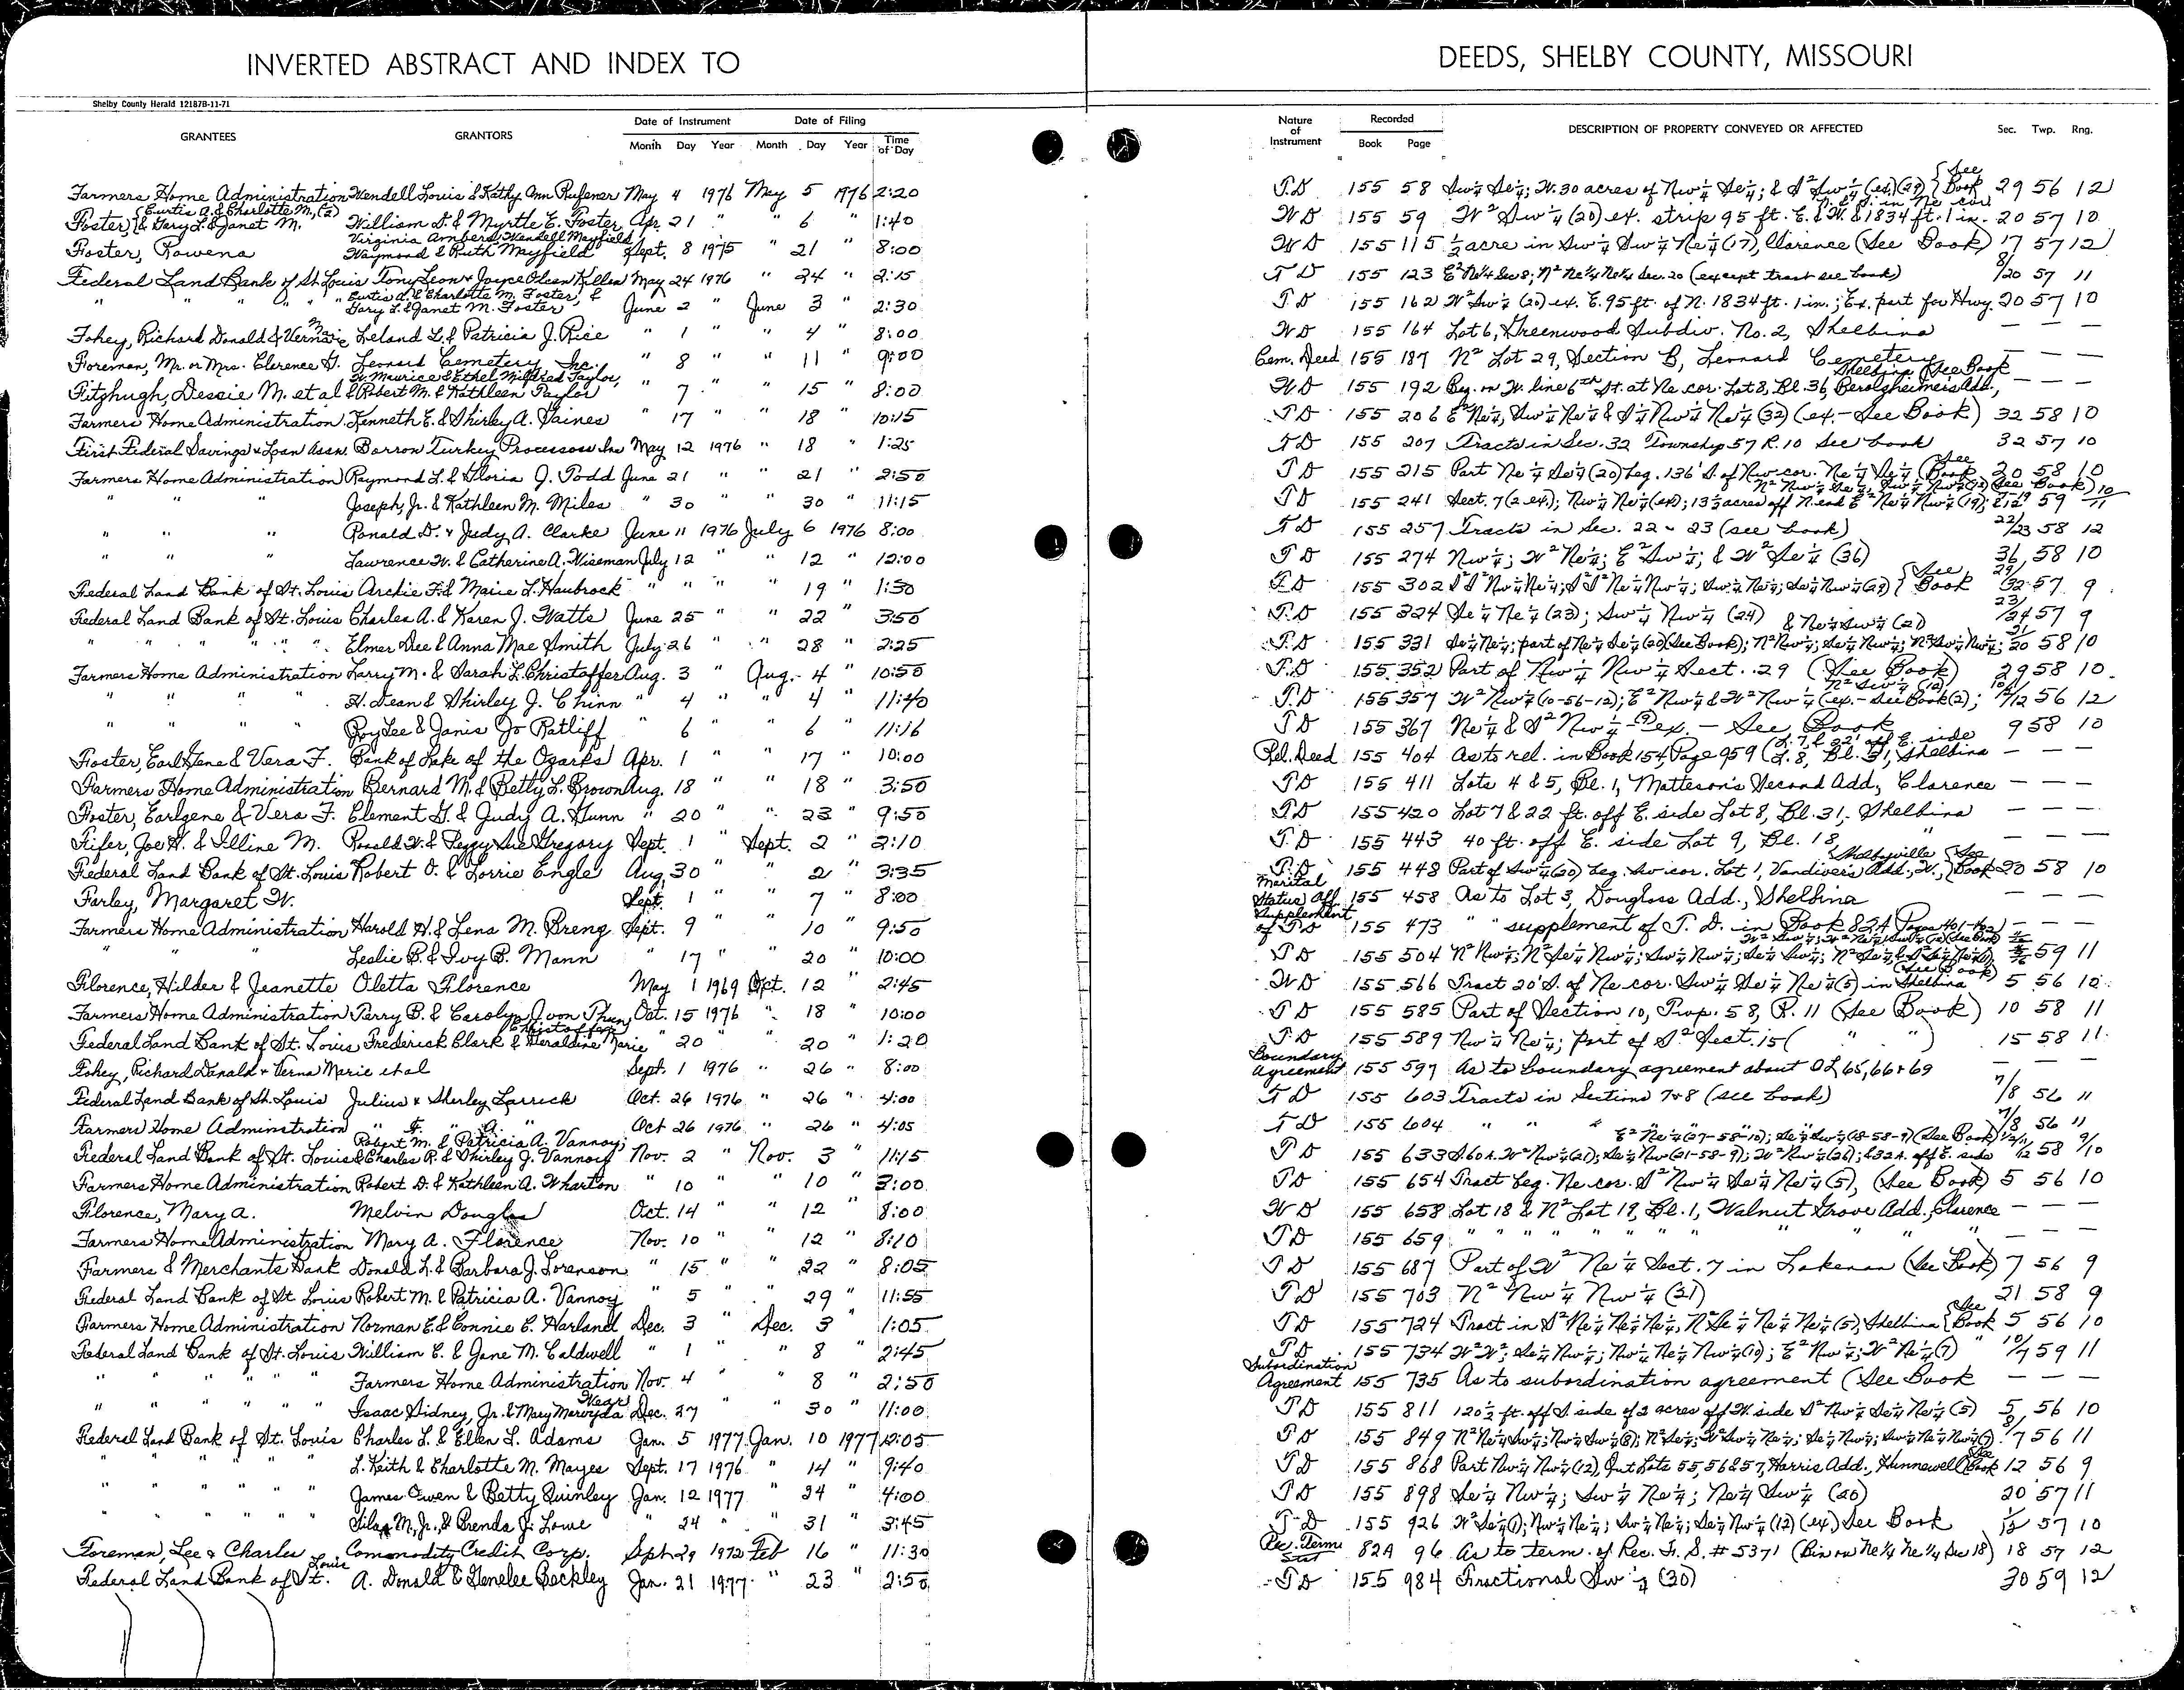 INVERTED ABSTRACT AND INDEX TO DEEDS, SHELBY COUNTY, MISSOURI
Shelby County Herald 12187B-11-71
GRANTEES GRANTORS Date of Instrument Month Day Year Date of Filing Month Day Year Time of Day Nature of Instrument Recorded Book Page DESCRIPTION OF PROPERTY CONVEYED OR AFFECTED Sec. Twp. Rng.
Farmers Home Administration Wendell Louis & Kathy Ann Rufener May 4 1976 May 5 1976 2:20 T.D 155 58 Sw¼ Se¼; W. 30 acres of Nw¼ Se¼; & S² Sw¼ (ex.) (29) {See Book 29 56 12
Foster, {Curtis A. & Charlotte M. (2) & Gary L. & Janet M. William D. & Myrtle E. Foster Apr. 21 " " 6 " 1:40 WD 155 59 W² Sw¼ (20) ex. strip 95 ft. E. & W. & 1834 ft. 1 in. N. & S. in Ne cor 20 57 10
Foster, Rowena Virginia Ambers, Wendell Mayfield, Waymond & Ruth Mayfield Sept. 8 1975 " 21 " 8:00 WD 155 115 ½ acre in Sw¼ Sw¼ Ne¼ (17), Clarence (See Book) 17 57 12
Federal Land Bank of St Louis Tony Leon & Joyce Oleen Killen May 24 1976 " 24 " 2:15 TD 155 123 E² Ne¼ Sec 8; N² Ne¼ Ne¼ Sec. 20 (except tract see book) 8/20 57 11
" " " " " Curtis A. & Charlotte M. Foster, & Gary L. & Janet M. Foster June 2 " June 3 " 2:30 TD 155 162 W² Sw¼ (20) ex. E. 95 ft. of N. 1834 ft. 1 in.; Ex. part for Hwy. 20 57 10
Fohey, Richard Donald & Verna Marie Leland L. & Patricia J. Rice " 1 " " 4 " 8:00 WD 155 164 Lot 6, Greenwood Subdiv. No. 2, Shelbina — — —
Foreman, Mr. or Mrs. Clarence G. Leonard Cemetery, Inc. " 8 " " 11 " 9:00 Cem. Deed 155 187 N² Lot 29, Section B, Leonard Cemetery — — —
Fitzhugh, Dessie M. et al W. Maurice & Ethel Mildred Taylor, & Robert M. & Kathleen Taylor " 7 " " 15 " 8:00 WD 155 192 Beg. on W. line 6th St. at Ne cor. Lot 8, Bl. 36, Berolzheimers Add., Shelbina (See Book — — —
Farmers Home Administration Kenneth E. & Shirley A. Gaines " 17 " " 18 " 10:15 TD 155 206 E² Ne¼, Sw¼ Ne¼ & S½ Nw¼ Ne¼ (32) (ex.— See Book) 32 58 10
First Federal Savings & Loan Assn. Barron Turkey Processors Inc May 12 1976 " 18 " 1:25 TD 155 207 Tracts in Sec. 32 Township 57 R. 10 See book 32 57 10
Farmers Home Administration Raymond L. & Gloria J. Todd June 21 " " 21 " 2:50 TD 155 215 Part Ne¼ Se¼ (20) beg. 136' S. of Nw cor. Ne¼ Se¼ (See Book 20 58 10
" " " Joseph, Jr. & Kathleen M. Miles " 30 " " 30 " 11:15 TD 155 241 Sect. 7 (2 ex.); Nw¼ Ne¼ (ex.); 13½ acres off N. end E² Ne¼ Nw¼ (19); (See Book) 59
" " " Ronald D. & Judy A. Clarke June 11 1976 July 6 1976 8:00 TD 155 257 Tracts in Sec. 22 - 23 (see book) 22/23 58 12
" " " Lawrence W. & Catherine A. Wiseman July 12 " " 12 " 12:00 TD 155 274 Nw¼; W² Ne¼; E² Sw¼; & W² Se¼ (36) 36 58 10
Federal Land Bank of St. Louis Archie F. & Marie L. Haubrock " " " " 19 " 1:30 TD 155 302 S² S² Nw¼ Ne¼; S² S² Ne¼ Nw¼; Sw¼ Ne¼; Se¼ Nw¼ (29) {See Book 29/32 57 9
Federal Land Bank of St. Louis Charles A. & Karen J. Watts June 25 " " 22 " 3:50 T.D 155 324 Se¼ Ne¼ (23); Sw¼ Nw¼ (24) 23/24 57 9
" " " " " Elmer Dee & Anna Mae Smith July 26 " " 28 " 2:25 T.D. 155 331 Se¼ Ne¼; part of Ne¼ Se¼ (20) (See Book); N² Nw¼; Se¼ Nw¼; N² Sw¼ Nw¼; & Ne¼ Sw¼ (21) 21/20 58 10
Farmers Home Administration Larry M. & Sarah L. Christoffer Aug. 3 " Aug. 4 " 10:50 T.D. 155 352 Part of Nw¼ Nw¼ Sect. 29 (See Book) 29 58 10
" " " H. Dean & Shirley J. Chinn " 4 " " 4 " 11:40 T.D. 155 357 W² Nw¼ (10-56-12); E² Nw¼ & W² Nw¼ (ex.— See Book (2); N² Sw¼ (12) 56 12
" " " Roy Lee & Janis Jo Ratliff " 6 " " 6 " 11:16 TD 155 367 Ne¼ & S² Nw¼ (9) ex. — See Book 9 58 10
Foster, Earl Gene & Vera F. Bank of Lake of the Ozarks Apr. 1 " " 17 " 10:00 Rel. Deed 155 404 As to rel. in Book 154, Page 959 (L. 7 & 22' off E. side L. 8, Bl. 31, Shelbina — — —
Farmers Home Administration Bernard M. & Betty L. Brown Aug. 18 " " 18 " 3:50 TD 155 411 Lots 4 & 5, Bl. 1, Matteson's Second Add., Clarence — — —
Foster, Earlgene & Vera F. Clement G. & Judy A. Gunn " 20 " " 23 " 9:50 TD 155 420 Lot 7 & 22 ft. off E. side Lot 8, Bl. 31, Shelbina — — —
Fifer, Joe H. & Illine M. Ronald W. & Peggy Sue Gregory Sept. 1 " Sept. 2 " 2:10 T.D. 155 443 40 ft. off E. side Lot 9, Bl. 18, " — — —
Federal Land Bank of St. Louis Robert O. & Lorrie Engle Aug. 30 " " 2 " 3:35 T.D 155 448 Part of Sw¼ (20) beg. Sw cor. Lot 1, Vandiver's Add., W., Shelbyville {See Book 20 58 10
Farley, Margaret W. Sept. 1 " " 7 " 8:00 Marital Status Aff. 155 458 As to Lot 3, Douglass Add., Shelbina — — —
Farmers Home Administration Harold H. & Lena M. Breng Sept. 9 " " 10 " 9:50 Supplement of TD 155 473 " " supplement of T.D. in Book 82A Pages 401-402) — — —
" " " Leslie B. & Ivy B. Mann " 17 " " 20 " 10:00 TD 155 504 N² Nw¼; N² Se¼ Nw¼; Sw¼ Nw¼; Se¼ Sw¼; (See Book) 59 11
Florence, Hilder & Jeanette Oletta Florence May 1 1969 Oct. 12 " 2:45 WD 155 566 Tract 20' S. of Ne cor. Sw¼ Se¼ Ne¼ (5) in Shelbina (See Book) 5 56 10
Farmers Home Administration Perry B. & Carolyn J. von Thun Oct. 15 1976 " 18 " 10:00 TD 155 585 Part of Section 10, Twp. 58, R. 11 (See Book) 10 58 11
Federal Land Bank of St. Louis Frederick Clark & Geraldine Marie Christoffer " 20 " " 20 " 1:20 TD 155 589 Nw¼ Ne¼; part of S² Sect. 15 ( " " ) 15 58 11
Fohey, Richard Donald & Verna Marie et al Sept. 1 1976 " 26 " 8:00 Boundary Agreement 155 597 As to boundary agreement about OL 65, 66 & 69 — — —
Federal Land Bank of St. Louis Julius & Sherley Larrick Oct. 26 1976 " 26 " 4:00 TD 155 603 Tracts in Sections 7 & 8 (see book) 7/8 56 11
Farmers Home Administration " & " Oct 26 1976 " 26 " 4:05 TD 155 604 " " " 7/8 56 "
Federal Land Bank of St. Louis Robert M. & Patricia A. Vannoy; & Charles R. & Shirley J. Vannoy Nov. 2 " Nov. 3 " 11:15 TD 155 633 E² Ne¼ (27-58-10); Se¼ Sw¼ (18-58-9) (See Book) S 60 A. W² Nw¼ (21); Se¼ Nw (21-58-9); W² Nw¼ (26); & 32 A. off E. side 58 9/10
Farmers Home Administration Robert D. & Kathleen A. Wharton " 10 " " 10 " 3:00 TD 155 654 Tract beg. Ne cor. S² Nw¼ Se¼ Ne¼ (5), (See Book) 5 56 10
Florence, Mary A. Melvin Douglas Oct. 14 " " 12 " 8:00 WD 155 658 Lot 18 & N² Lot 19, Bl. 1, Walnut Grove Add., Clarence — — —
Farmers Home Administration Mary A. Florence Nov. 10 " " 12 " 8:10 TD 155 659 " " " " " " " " " " — — —
Farmers & Merchants Bank Donald L. & Barbara J. Sorenson " 15 " " 22 " 8:05 TD 155 687 Part of W² Ne¼ Sect. 7 in Lakenan (See Book) 7 56 9
Federal Land Bank of St Louis Robert M. & Patricia A. Vannoy " 5 " " 29 " 11:55 TD 155 703 N² Nw¼ Nw¼ (21) 21 58 9
Farmers Home Administration Norman E. & Connie C. Harland Dec. 3 " Dec. 3 " 1:05 TD 155 724 Tract in S² Ne¼ Ne¼ Ne¼, N² Se¼ Ne¼ Ne¼ (5), Shelbina {See Book 5 56 10
Federal Land Bank of St. Louis William C. & Jane M. Caldwell " 1 " " 8 " 2:45 TD 155 734 W² W²; Se¼ Nw¼; Nw¼ Ne¼ Nw¼ (10); E² Nw¼; W² Ne¼ (7) " 10/7 59 11
" " " " " " Farmers Home Administration Nov. 4 " " 8 " 2:50 Subordination Agreement 155 735 As to subordination agreement (See Book — — —
" " " " " " Isaac Sidney, Jr. & Mary Marvyda Wear Dec. 27 " " 30 " 11:00 TD 155 811 120½ ft. off S. side of 2 acres off W. side S² Nw¼ Se¼ Ne¼ (5) 5 56 10
Federal Land Bank of St. Louis Charles L. & Ellen L. Adams Jan. 5 1977 Jan. 10 1977 12:05 TD 155 849 N² Ne¼ Sw¼; Nw¼ Sw¼ (8); N² Se¼; W² Sw¼ Ne¼; Se¼ Nw¼; Sw¼ Ne¼ Nw¼ (7) 8/7 56 11
" " " " " L. Keith & Charlotte M. Mayes Sept. 17 1976 " 14 " 9:40 TD 155 868 Part Nw¼ Nw¼ (12), Out Lots 55, 56 & 57, Harris Add., Hunnewell (See Book 12 56 9
" " " " " James Owen & Betty Quinley Jan. 12 1977 " 24 " 4:00 TD 155 898 Se¼ Nw¼; Sw¼ Ne¼; Ne¼ Sw¼ (20) 20 57 11
" " " " " Silas M., Jr., & Brenda J. Lowe " 24 " " 31 " 3:45 TD 155 926 W² Se¼ (1); Nw¼ Ne¼; Sw¼ Ne¼; Se¼ Nw¼ (12) (ex.) See Book 1/12 57 10
Foreman, Lee & Charles Commodity Credit Corp. Sept 29 1972 Feb 16 " 11:30 Rec. Term Stat 82A 96 As to term. of Rec. F. S. # 5371 (Bin on Ne¼ Ne¼ Sec 18) 18 57 12
Federal Land Bank of St. Louis A. Donald & Genelee Beckley Jan. 21 1977 " 23 " 2:50 TD 155 984 Fractional Sw¼ (30) 30 59 12